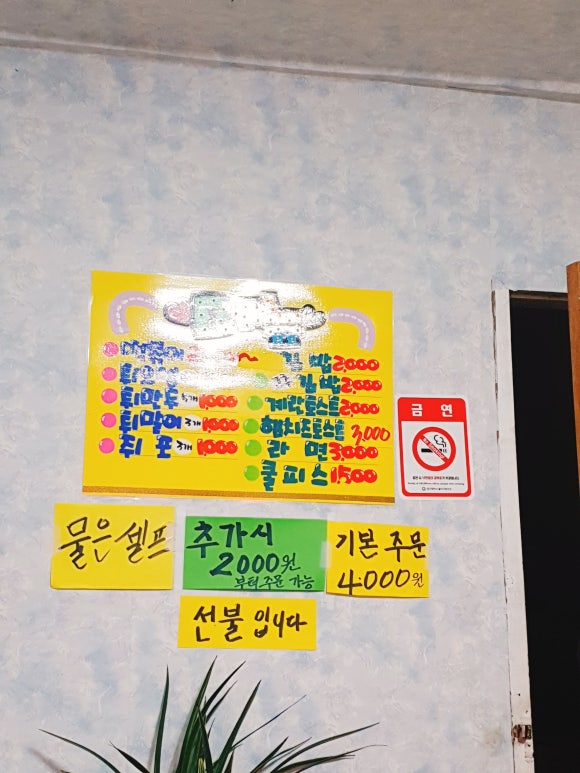 떡볶이 ~
튀오뎅
튀만두 5개 1,000
튀말이 3개 1,000
쥐포 3개 1,000
김밥 2,000
김밥 2,000
계란토스트 2,000
햄치즈토스트 3,000
라면 3,000
쿨피스 1,500
금연
물은 셀프
추가시
2000원
부터 주문 가능
기본 주문
4000원
선불 입니다